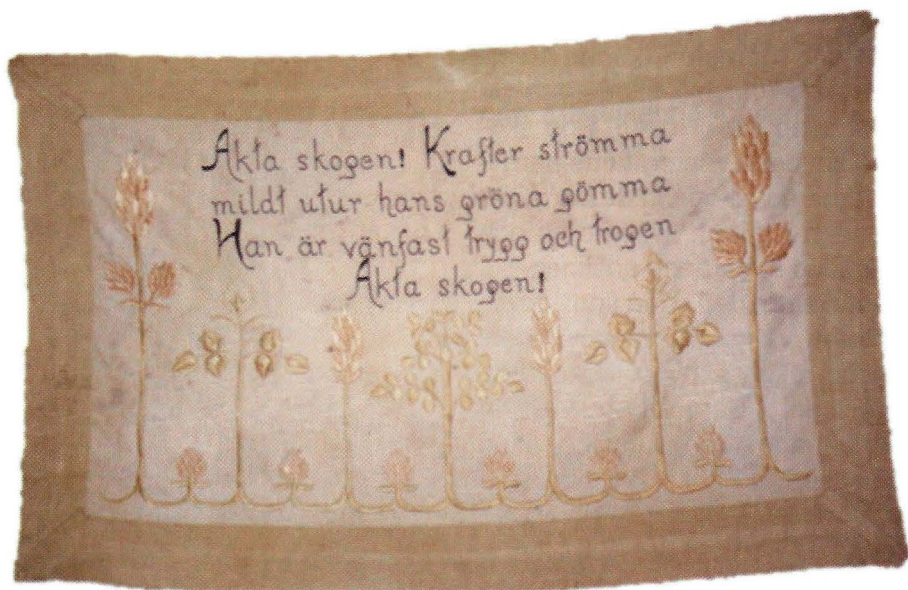 Akta skogen! Krafter strömma
mildt utur hans gröna gömma
Han är vänfast trygg och trogen
Akta skogen!